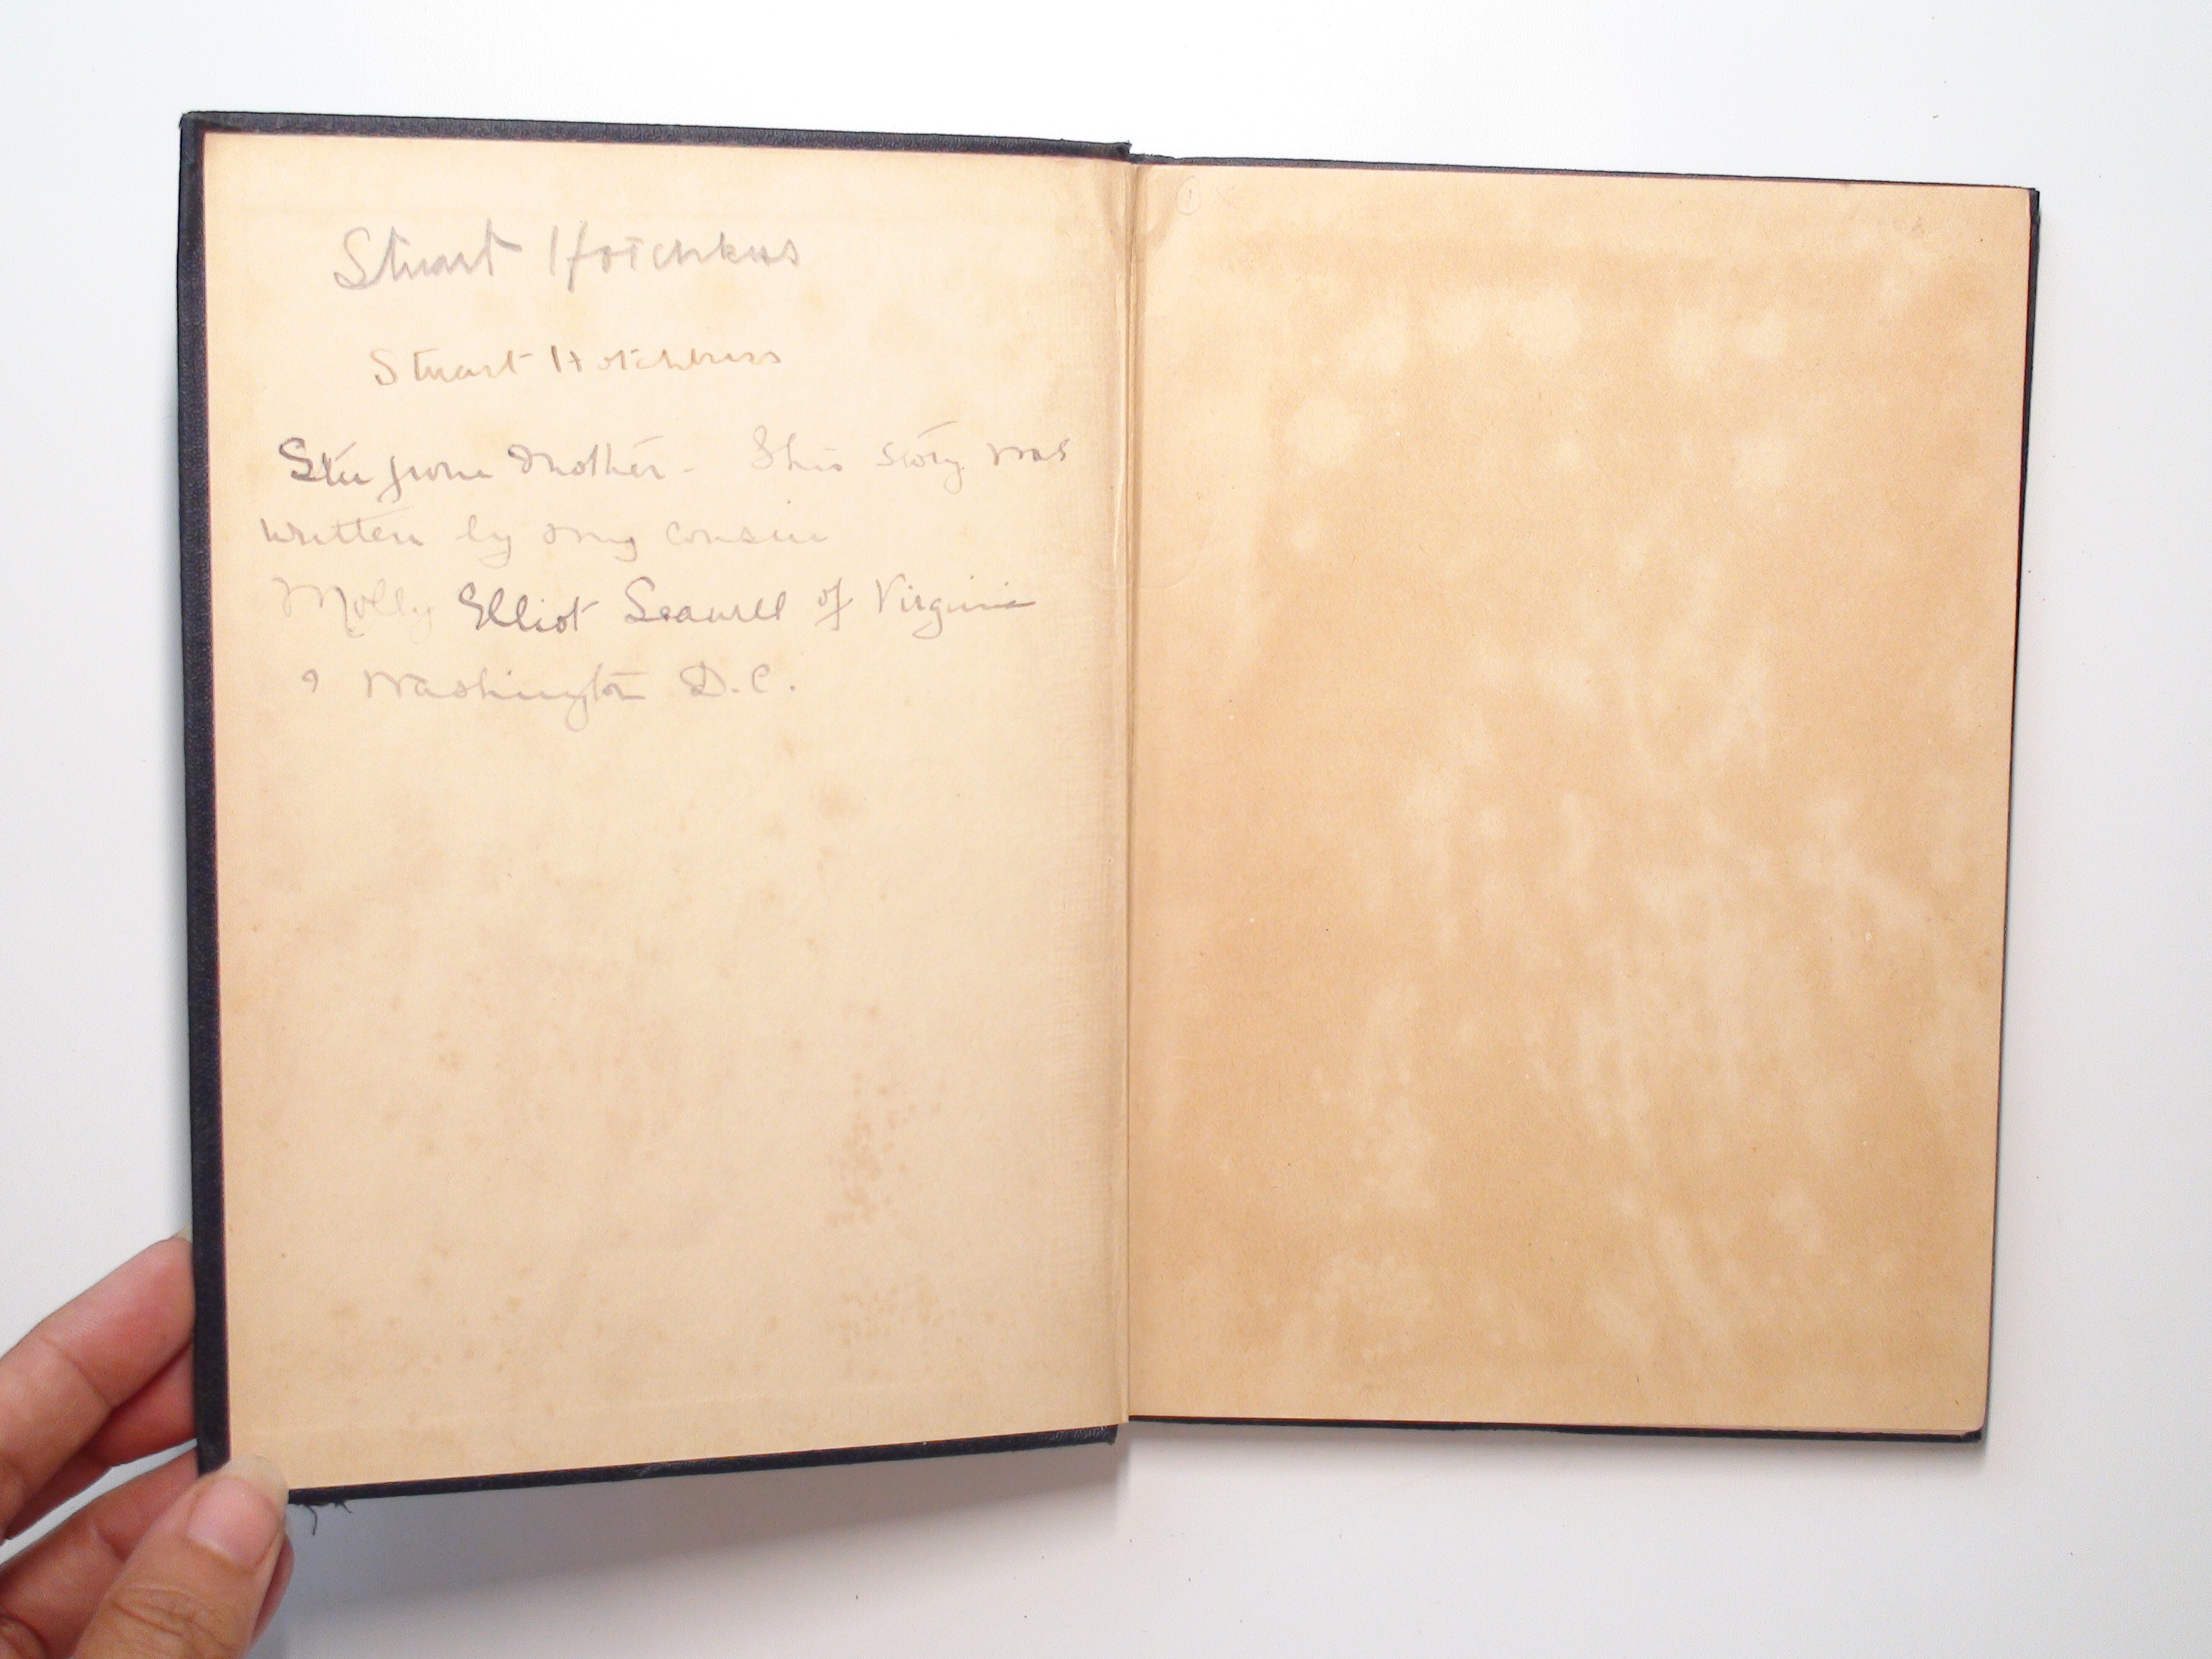 Stuart Hotchkiss
Stuart Hotchkiss
Stu from Mother - This story was
written by my cousin
Molly Elliot Seawell of Virginia
& Washington D.C.
1